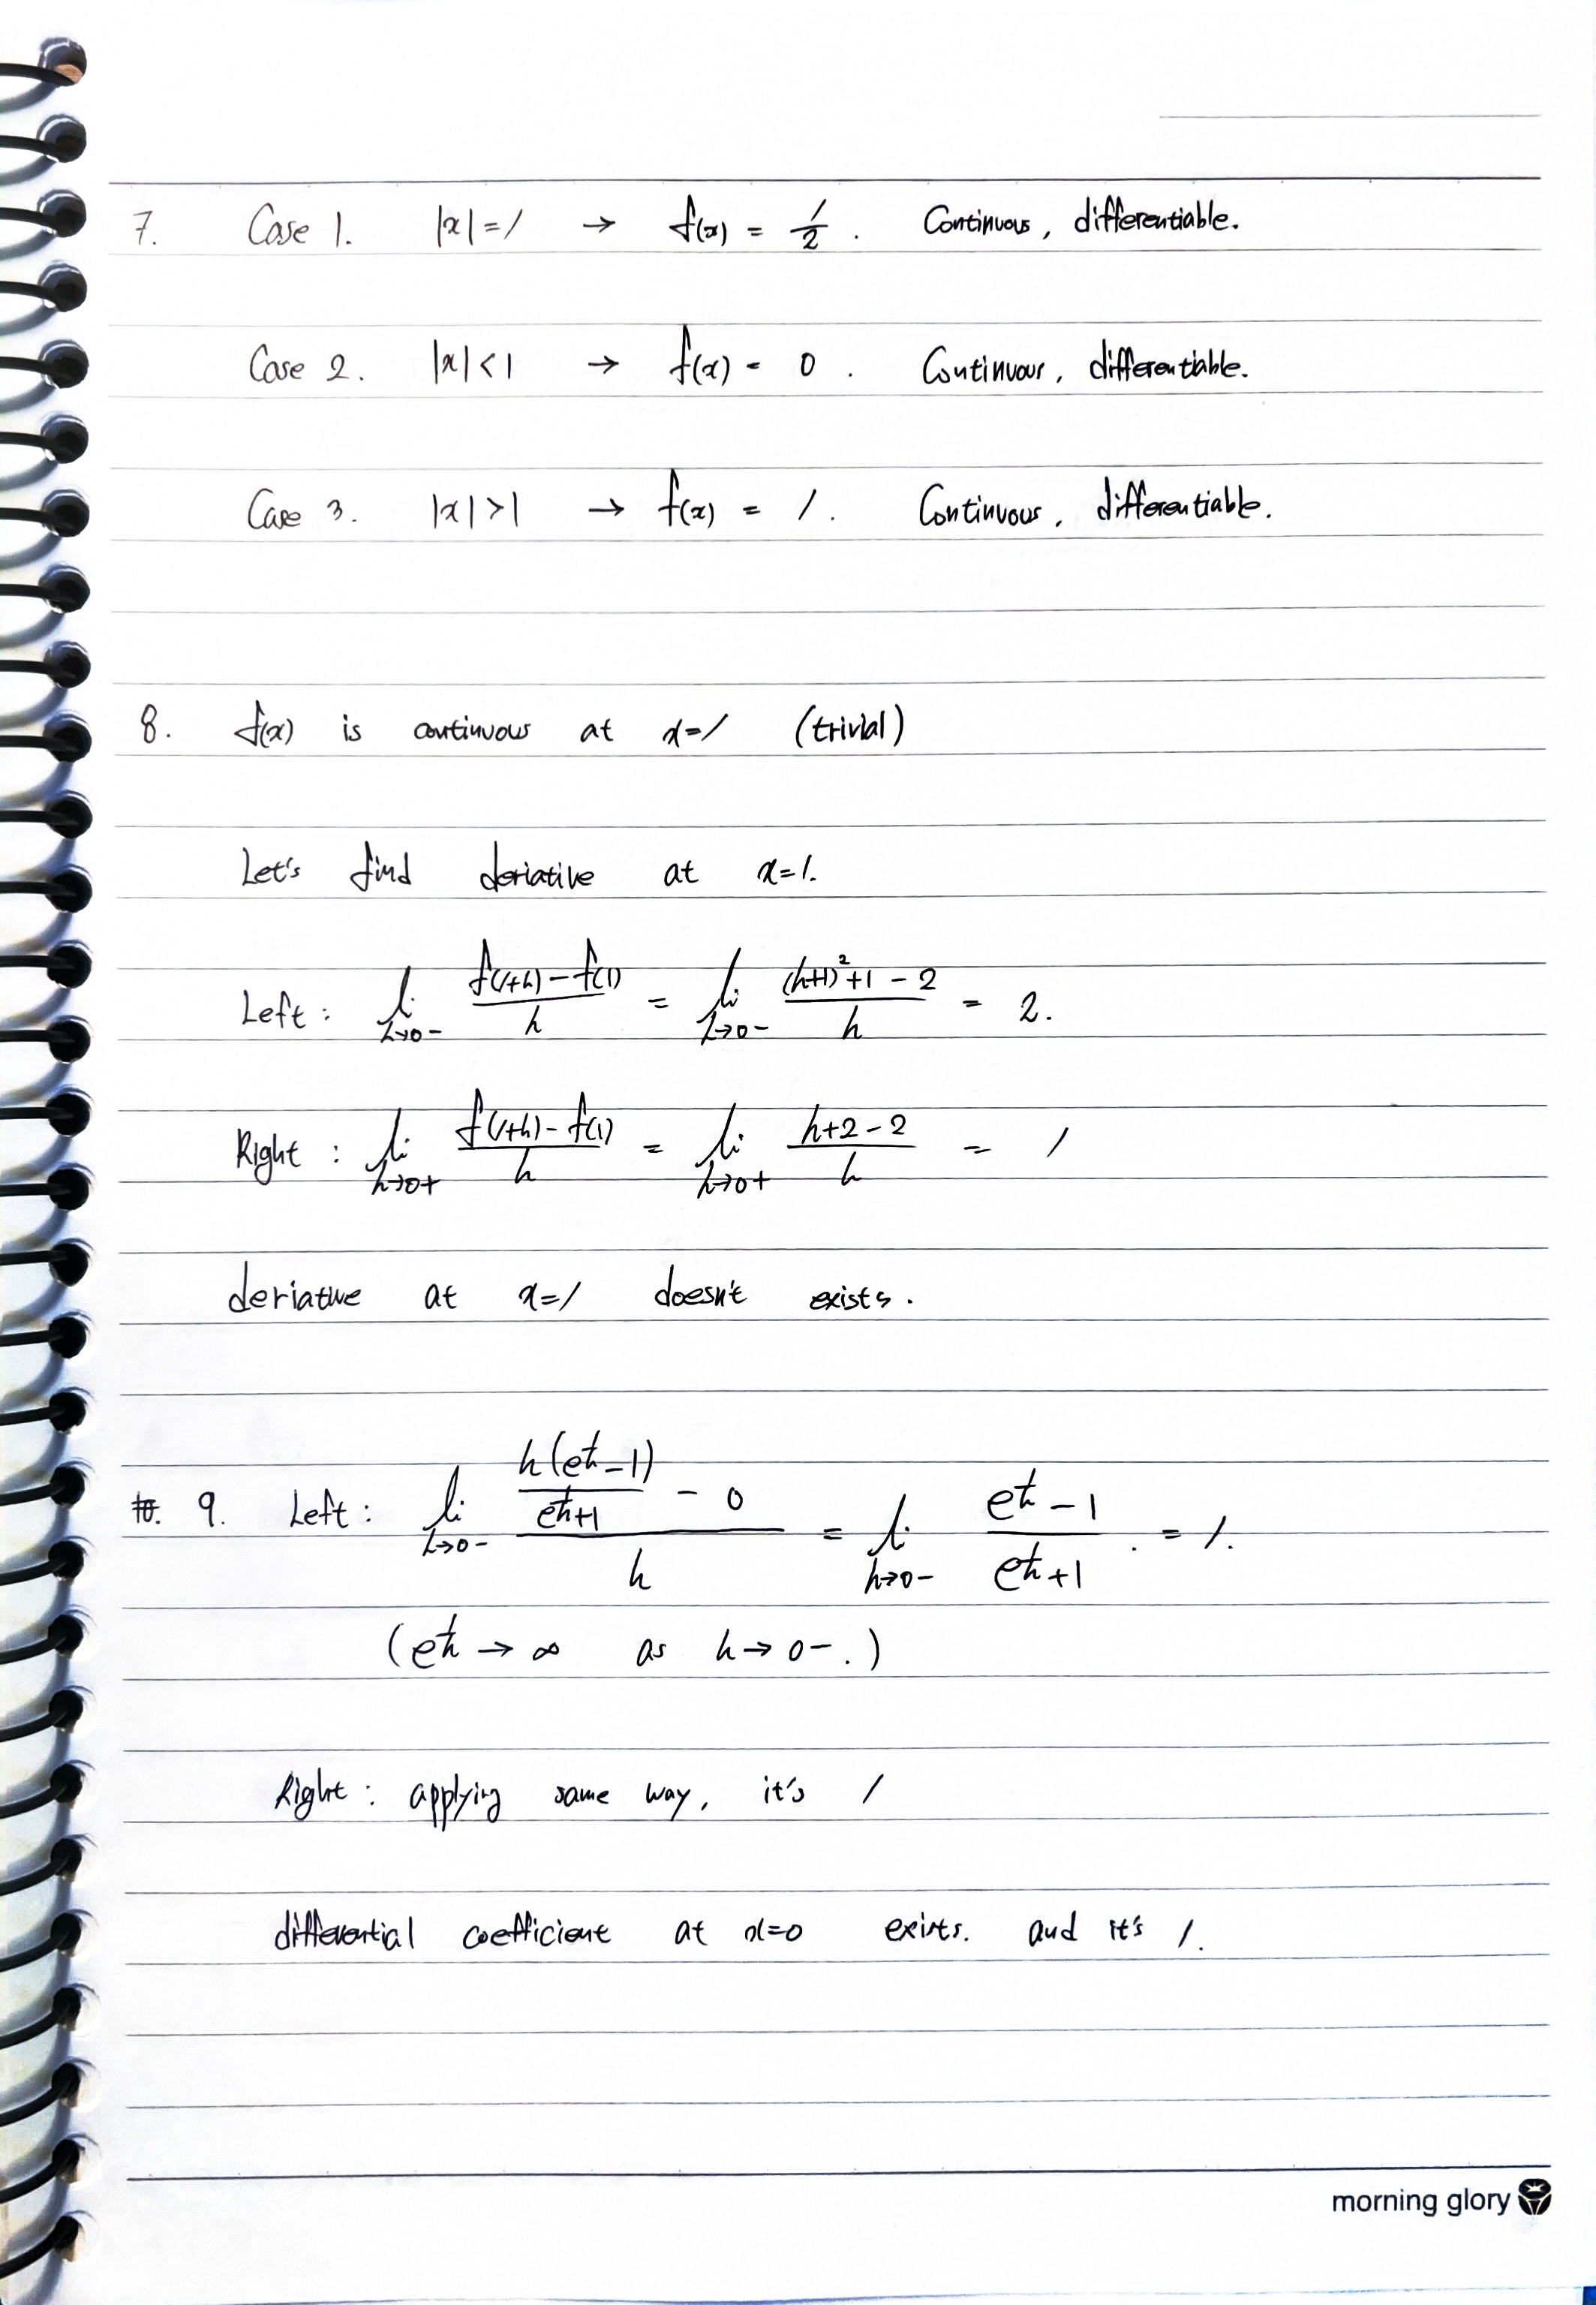 7. Case 1. |x|=1 → f(x) = 1/2 . Continuous, differentiable.
Case 2. |x|<1 → f(x) = 0 . Continuous, differentiable.
Case 3. |x|>1 → f(x) = 1. Continuous, differentiable.
8. f(x) is continuous at x=1 (trivial)
Let's find deriative at x=1.
Left : li_{h→0-} (f(1+h)-f(1))/h = li_{h→0-} ((h+1)²+1-2)/h = 2.
Right : li_{h→0+} (f(1+h)-f(1))/h = li_{h→0+} (h+2-2)/h = 1
deriative at x=1 doesn't exists.
9. Left : li_{h→0-} (h(e^{1/h}-1)/(e^{1/h}+1) - 0)/h = li_{h→0-} (e^{1/h}-1)/(e^{1/h}+1) . = 1.
(e^{1/h} → ∞ as h→0-.)
Right : applying same way, it's 1
differential coefficient at x=0 exists. and it's 1.
morning glory